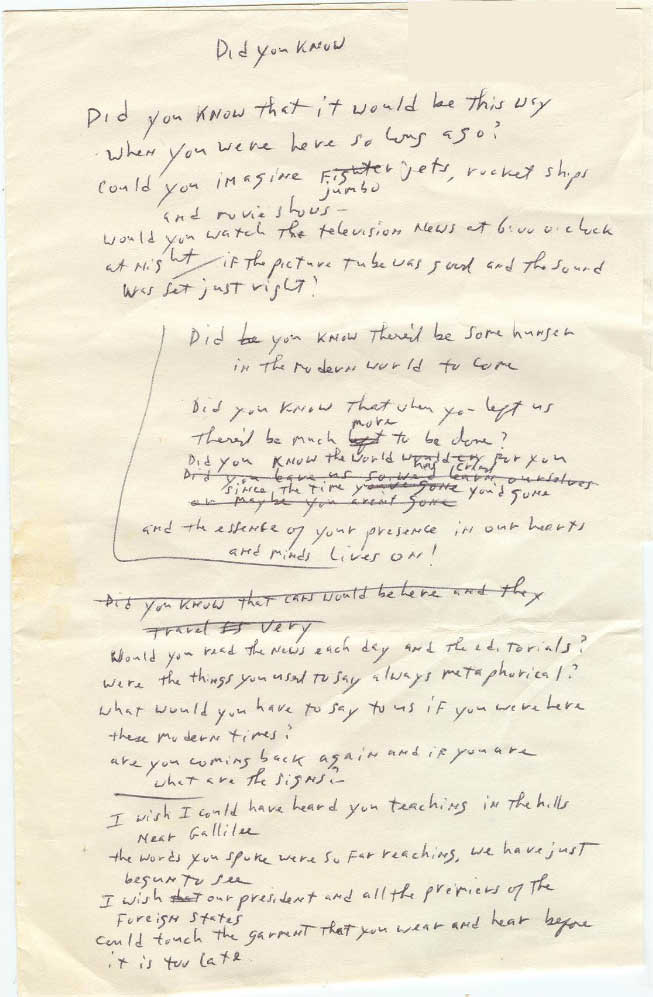 Did you Know
Did you Know that it would be this way
when you were here so long ago?
Could you imagine Fighter jets, rocket ships
jumbo
and movie shows-
would you watch the television News at 6:00 o:clock
at Night if the picture tube was good and the sound
was set just right?
Did be you Know there'd be some hunger
in the modern world to come
Did you Know that when you left us
more
there'd be much left to be done?
Did you Know the World would cry for you
has cried
Did you leave us so we'd learn ourselves
since the time you've gone you'd gone
or maybe you arent gone
and the essence of your presence in our hearts
and minds lives on!
Did you Know that cars would be here and they
travel is very
Would you read the News each day and the editorials?
were the things you used to say always metaphorical?
what would you have to say to us if you were here
these modern times?
are you coming back again and if you are
what are the signs?-
I wish I could have heard you teaching in the hills
Near Gallilee
the words you spoke were so far reaching, we have just
begun to see
I wish that our president and all the premiers of the
Foreign States
could touch the garment that you wear and hear before
it is too late